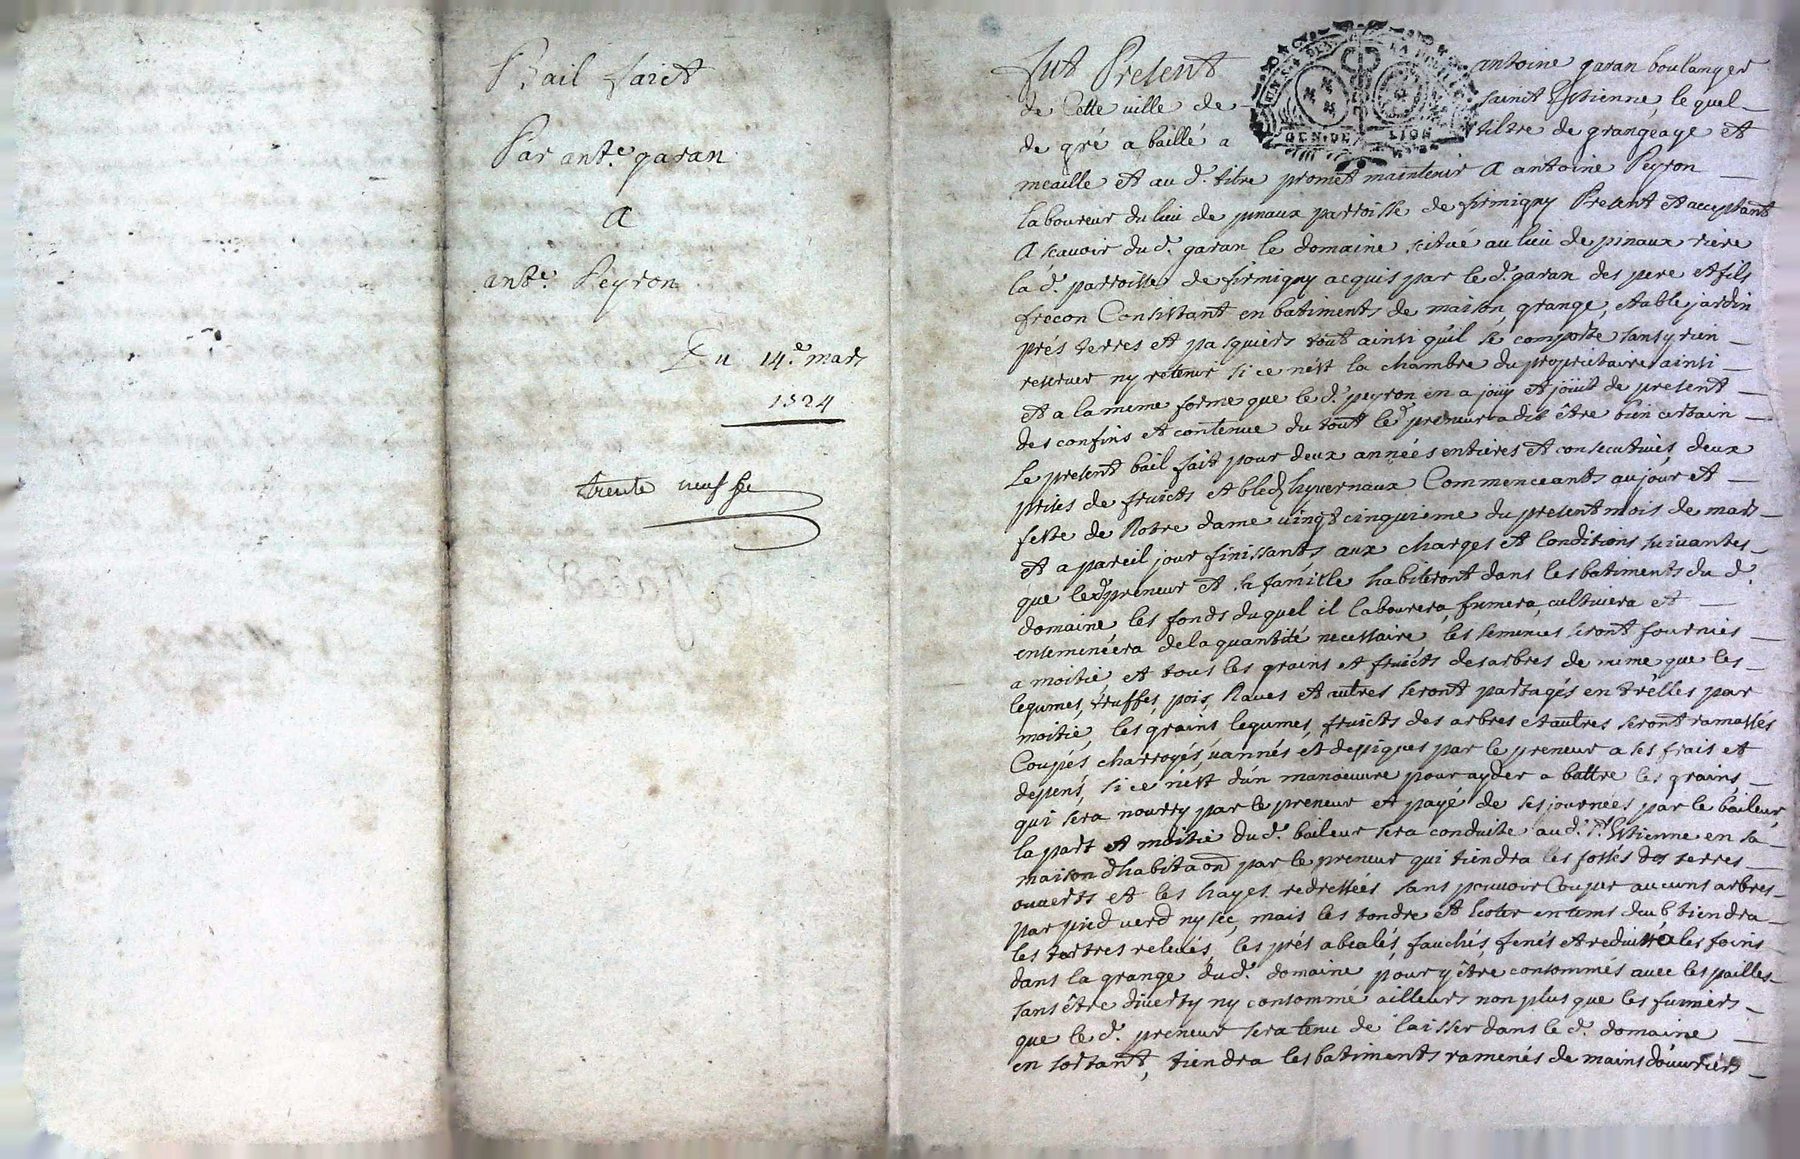 Bail faict
Par ant.e garan
A
ant.e Peyron
Du 14.e mars
1724
trente neuf
Fut Present antoine garan boulanger
GEN. DE LION
de Cette ville de saint Estienne, lequel
de gré a baillé a tiltre de grangeage et
meaille et au d. titre promet maintenir A antoine Peyron
laboureur du lieu de pinaux parroisse de firmigny Present et acceptant
A scavoir du d. garan le domaine scitué au lieu de pinaux riere
la d. parroisse de firmigny acquis par le d. garan des pere et fils
frecon Consistant en batiments de maison, grange, etable jardin
prés terres et pasquiers tout ainsi quil se comporte sans y rien
reserver ny retenir si ce n'est la chambre du propriétaire ainsi
et a la meme forme que le d. peyron en a jouy et jouit de present
des confins et contenue du tout le d preneur a dit être bien certain
Le present bail fait pour deux années entieres et consecutives, deux
prises de fruicts et bleds hyvernaux Commenceants au jour et
feste de Notre dame vingt cinquieme du present mois de mars
et a pareil jour finissants aux charges et Conditions suivantes
que le d preneur et sa famille habiteront dans les batiments du d.
domaine les fonds duquel il labourera, fumera, cultivera et
ensemencera de la quantité necessaire, les semences seront fournies
a moitié et tous les grains et fruicts des arbres de mime que les
legumes, truffes, pois, Raves et autres seront partagés entr'elles par
moitié, les grains, legumes, fruicts des arbres et autres seront ramassés
Coupés charroyés, vannés et depiques par le preneur a ses frais et
depens, si ce n'est d'un manoeuvre pour ayder a battre les grains
qui sera nourry par le preneur et payé de ses journées par le baileur,
la part et moitié du d. baileur sera conduite au d. St. Estienne en sa
maison dhabitaon par le preneur qui tiendra les fossés des terres
ouverts et les hayes redressées sans pouvoir Couper aucuns arbres
par pied verd ny sec, mais les tondre et en tems deub tiendra
les tertres relevés, les prés abealés, fauchés, fenés et les foins
dans la grange du d. domaine pour y être consommés avec les pailles
sans être diverty ny consommé ailleurs non plus que les fumiers
que le d. preneur sera tenu de laisser dans le d. domaine
en sortant, tiendra les batiments ramenés de mains d'ouvriers